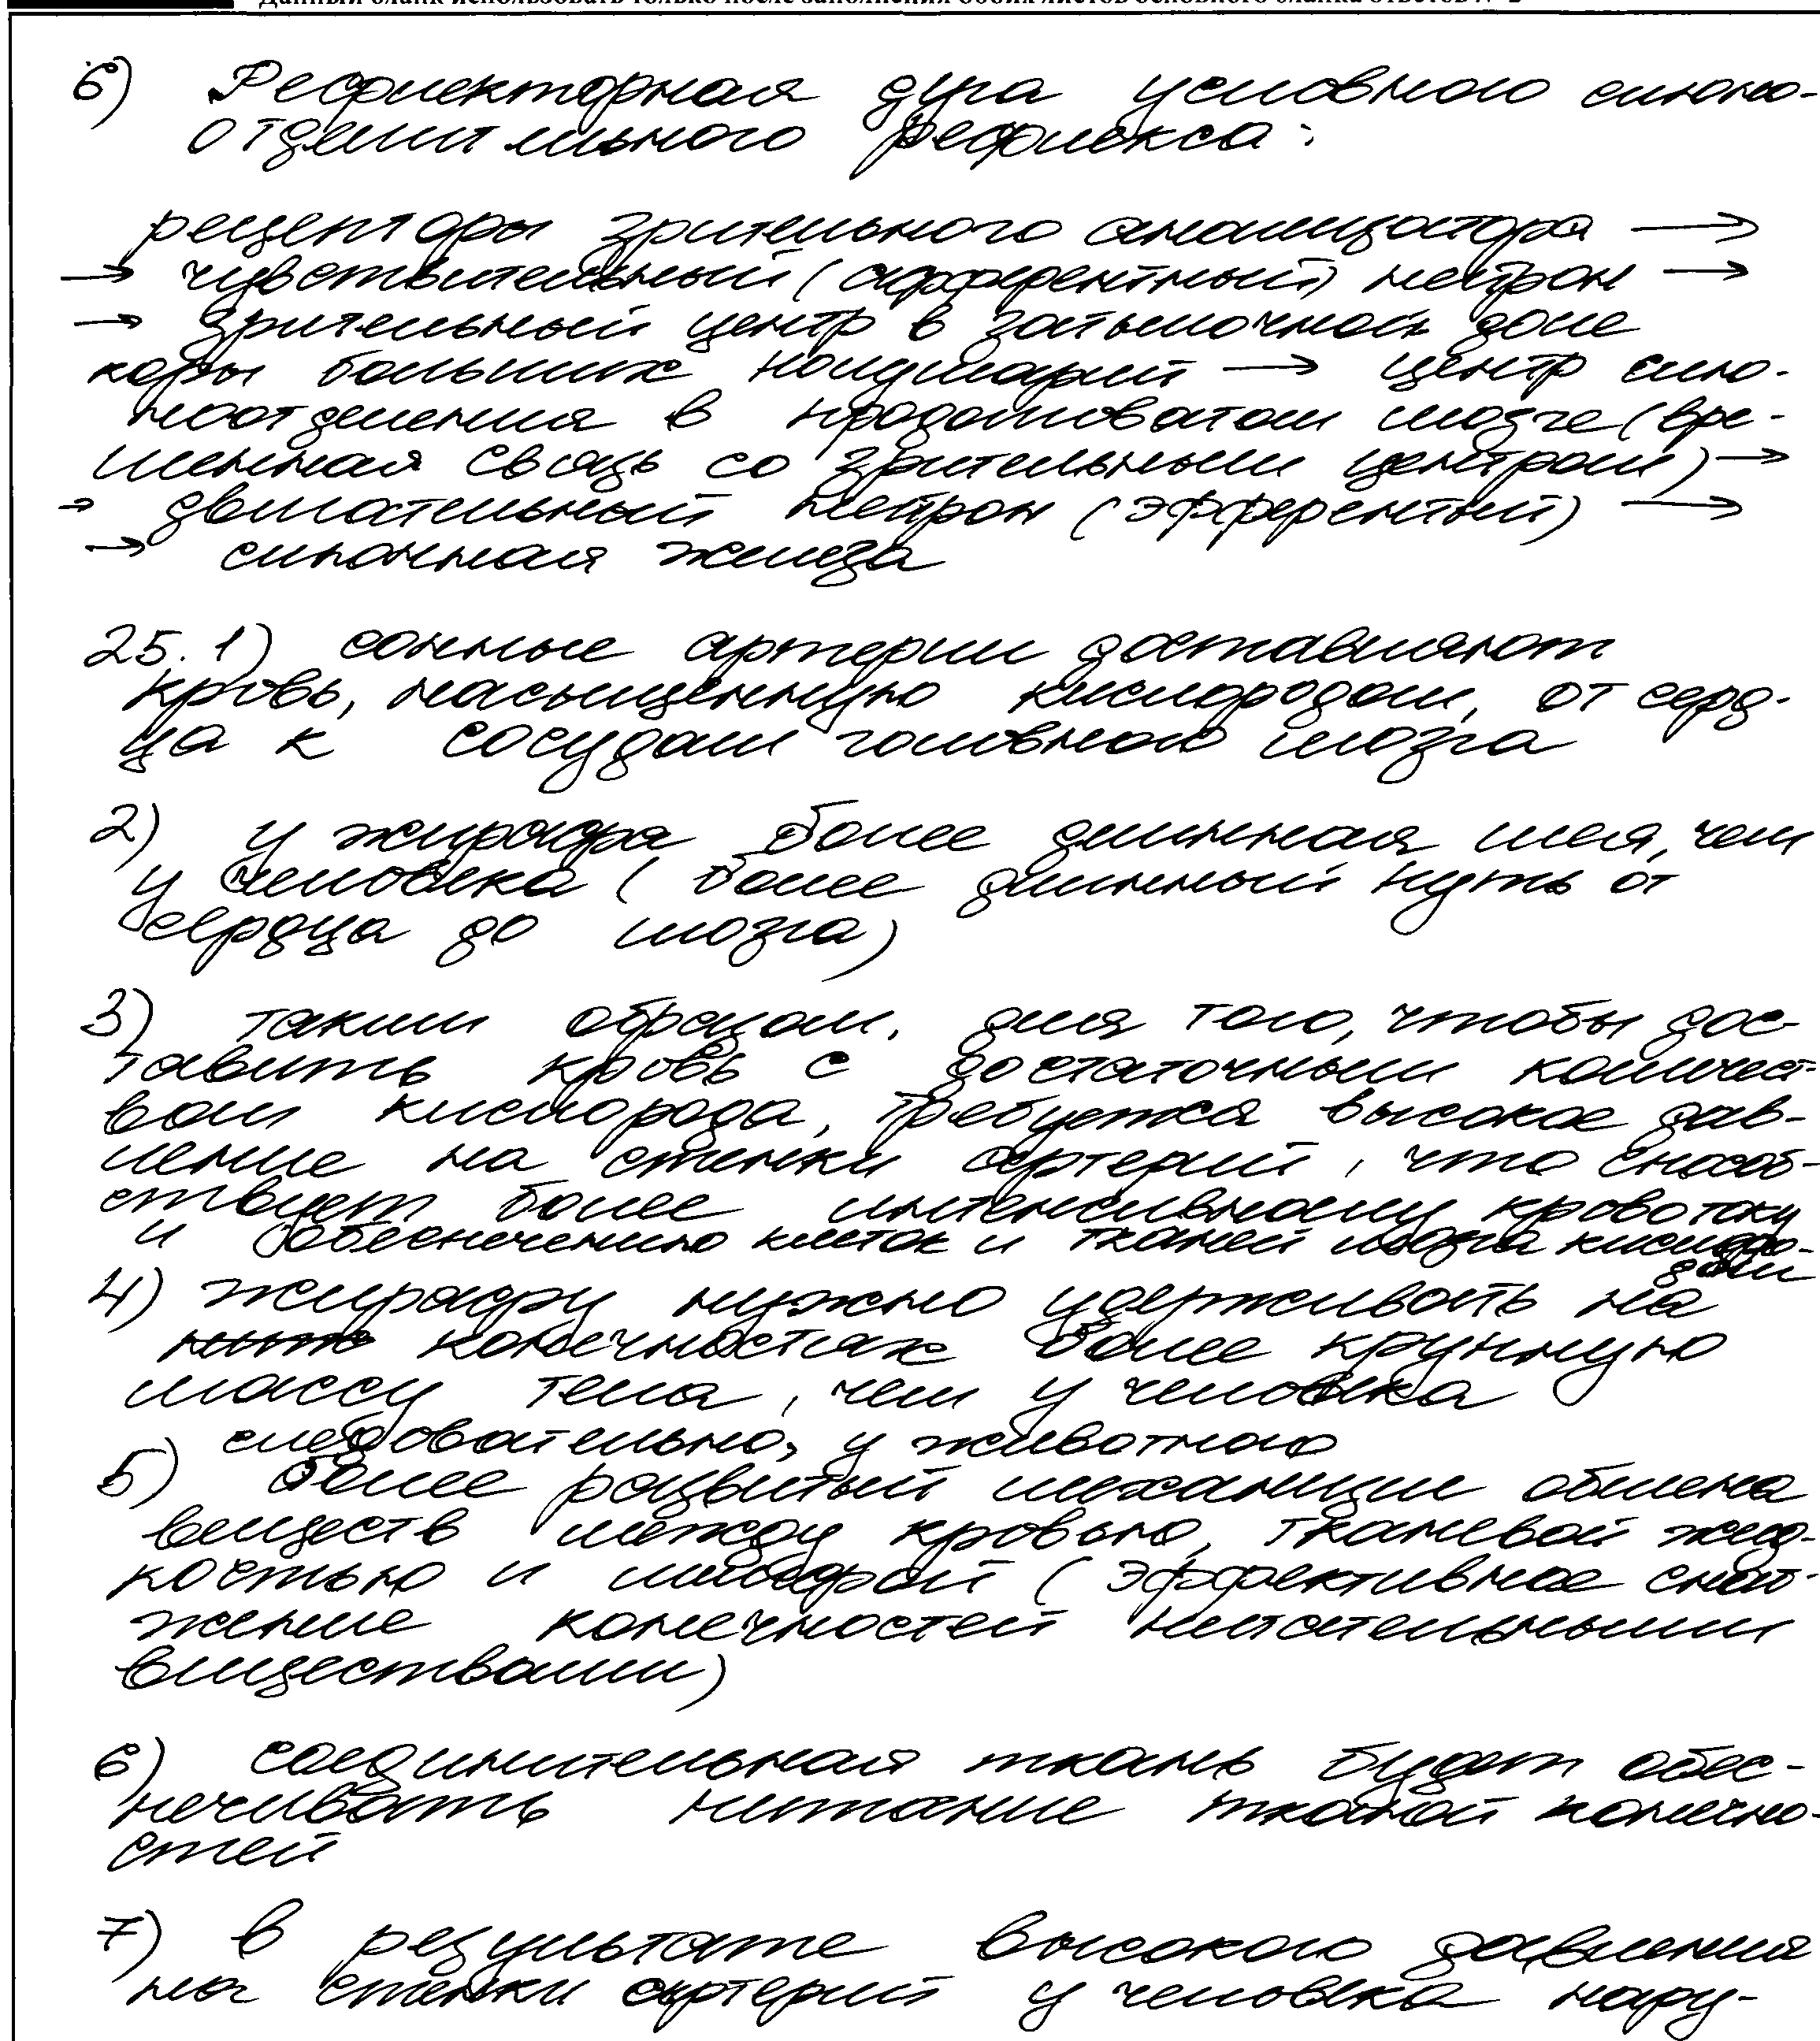 Данный бланк использовать только после заполнения обоих листов основного бланка ответов № 2
6) Рефлекторная дуга условного слюно-
отделительного рефлекса:
рецепторы зрительного анализатора →
→ чувствительный (афферентный) нейрон →
→ зрительный центр в затылочной доле
коры больших полушарий → центр слю-
ноотделения в продолговатом мозге (вре-
менная связь со зрительным центром) →
→ двигательный нейрон (эфферентный) →
→ слюнная железа
25. 1) сонные артерии доставляют
кровь, насыщенную кислородом, от серд-
ца к сосудам головного мозга
2) у жирафа более длинная шея, чем
у человека (более длинный путь от
сердца до мозга)
3) таким образом, для того, чтобы дос-
тавить кровь с достаточным количест-
вом кислорода, требуется высокое дав-
ление на стенки артерий, что способ-
ствует более интенсивному кровотоку
и обеспечению клеток и тканей мозга кислоро-
дом
4) жирафу нужно удерживать на
конечностях более крупную
массу тела, чем у человека
следовательно, у животного
5) более развитый механизм обмена
веществ между кровью, тканевой жид-
костью и лимфой (эффективное снаб-
жение конечностей питательными
веществами)
6) соединительная ткань будет обес-
печивать питание тканей конечно-
стей
7) в результате высокого давления
на стенки артерий у человека нару-